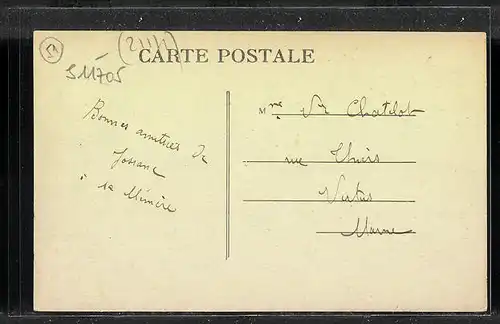 51
(21/1)
S11705
CARTE POSTALE
Bonnes amitiés de
Josiane
à sa Mémère
Mme Ve Chatelot
rue Thiers
Vertus
Marne